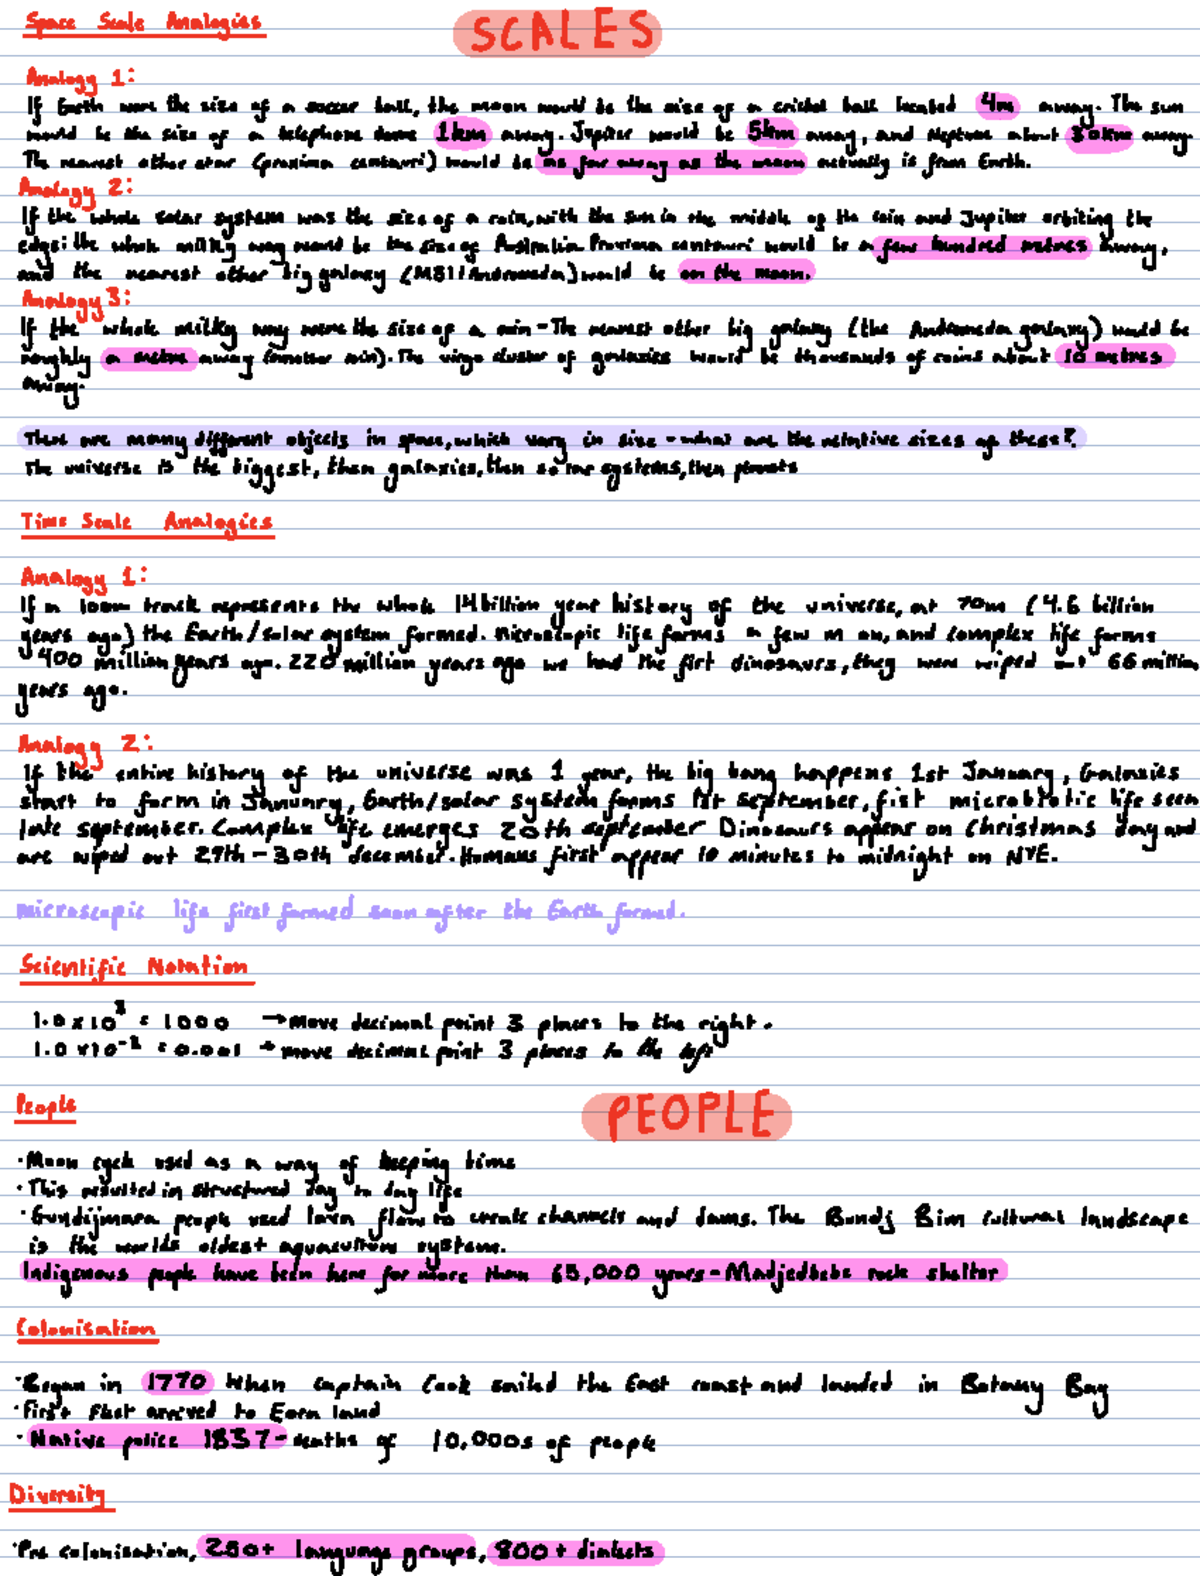 Space Scale Analogies
SCALES
Analogy 1:
If Earth were the size of a soccer ball, the moon would be the size of a cricket ball located 4m away. The sun
would be the size of a telephone dome 1km away. Jupiter would be 5km away, and Neptune about 30km away.
The nearest other star (proxima centauri) would be as far away as the moon actually is from Earth.
Analogy 2:
If the whole solar system was the size of a coin, with the sun in the middle of the coin and Jupiter orbiting the
edge: the whole milky way would be the size of Australia. Proxima centauri would be a few hundred metres away,
and the nearest other big galaxy (M31/Andromeda) would be on the moon.
Analogy 3:
If the whole milky way were the size of a coin - The nearest other big galaxy (the Andromeda galaxy) would be
roughly a metre away (another coin). The virgo cluster of galaxies would be thousands of coins about 10 metres
away.
There are many different objects in space, which vary in size - what are the relative sizes of these?
The universe is the biggest, then galaxies, then solar systems, then planets
Time Scale Analogies
Analogy 1:
If a 100m track represents the whole 14 billion year history of the universe, at 70m (4.6 billion
years ago) the Earth/solar system formed. Microscopic life forms a few m on, and complex life forms
400 million years ago. 220 million years ago we had the firt dinosaurs, they were wiped out 66 million
years ago.
Analogy 2:
If the entire history of the universe was 1 year, the big bang happens 1st January, Galaxies
start to form in January, Earth/solar system forms 1st september, fist life seen
late september. Complex life emerges 20th september Dinosaurs appear on Christmas day and
are wiped out 29th - 30th december. Humans first appear 10 minutes to midnight on NYE.
microscopic life first formed soon after the Earth formed.
Scientific Notation
1.0 x 10³ = 1000 → move decimal point 3 places to the right.
1.0 x 10⁻³ = 0.001 → move decimal point 3 places to the left
People
PEOPLE
· Moon cycle used as a way of keeping time
· This resulted in structured day to day life
· Gundijmara people used lava flow to create channels and dams. The Bundj Bim cultural landscape
is the worlds oldest aquaculture system.
Indigenous people have been here for more than 65,000 years - Madjedbebe rock shelter
Colonisation
· Began in 1770 when captain Cook sailed the East coast and landed in Botany Bay
· First fleet arrived to Eora land
· Native police 1837 - deaths of 10,000s of people
Diversity
· Pre colonisation, 250+ language groups, 800+ dialects